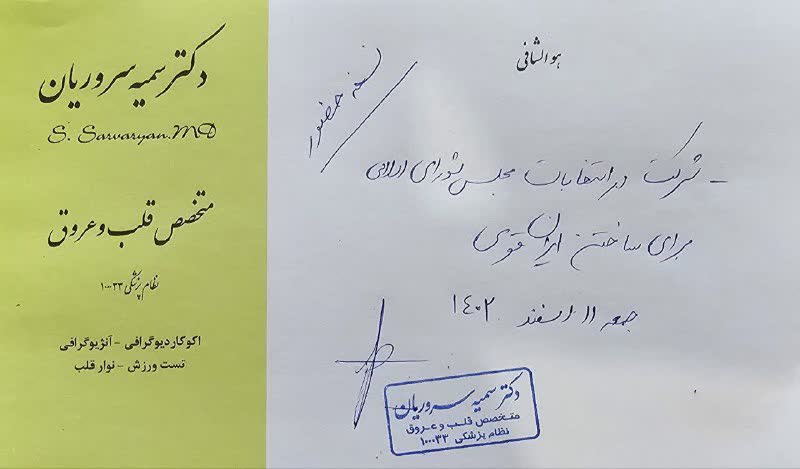 دکتر سمیه سروریان
S. Sarvaryan.MD
متخصص قلب و عروق
نظام پزشکی ۱۰۰۰۳۳
اکوکاردیوگرافی - آنژیوگرافی
تست ورزش - نوار قلب
هوالشافی
نسخه حضور
- شرکت در انتخابات مجلس شورای اسلامی
برای ساختن ایران قوی
جمعه ۱۱ اسفند ۱۴۰۲
دکتر سمیه سروریان
متخصص قلب و عروق
نظام پزشکی ۱۰۰۰۳۳